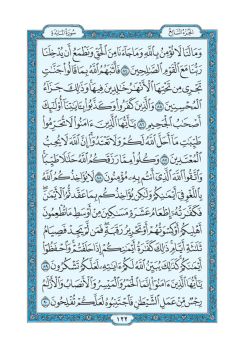 سورة المائدة الجزء السابع
وَمَا لَنَا لَا نُؤْمِنُ بِاللَّهِ وَمَا جَاءَنَا مِنَ الْحَقِّ وَنَطْمَعُ أَن يُدْخِلَنَا
رَبُّنَا مَعَ الْقَوْمِ الصَّالِحِينَ ٨٤ فَأَثَابَهُمُ اللَّهُ بِمَا قَالُوا جَنَّاتٍ
تَجْرِي مِن تَحْتِهَا الْأَنْهَارُ خَالِدِينَ فِيهَا وَذَٰلِكَ جَزَاءُ
الْمُحْسِنِينَ ٨٥ وَالَّذِينَ كَفَرُوا وَكَذَّبُوا بِآيَاتِنَا أُولَٰئِكَ
أَصْحَابُ الْجَحِيمِ ٨٦ يَا أَيُّهَا الَّذِينَ آمَنُوا لَا تُحَرِّمُوا
طَيِّبَاتِ مَا أَحَلَّ اللَّهُ لَكُمْ وَلَا تَعْتَدُوا إِنَّ اللَّهَ لَا يُحِبُّ
الْمُعْتَدِينَ ٨٧ وَكُلُوا مِمَّا رَزَقَكُمُ اللَّهُ حَلَالًا طَيِّبًا
وَاتَّقُوا اللَّهَ الَّذِي أَنتُم بِهِ مُؤْمِنُونَ ٨٨ لَا يُؤَاخِذُكُمُ اللَّهُ
بِاللَّغْوِ فِي أَيْمَانِكُمْ وَلَٰكِن يُؤَاخِذُكُم بِمَا عَقَّدتُّمُ الْأَيْمَانَ
فَكَفَّارَتُهُ إِطْعَامُ عَشَرَةِ مَسَاكِينَ مِنْ أَوْسَطِ مَا تُطْعِمُونَ
أَهْلِيكُمْ أَوْ كِسْوَتُهُمْ أَوْ تَحْرِيرُ رَقَبَةٍ فَمَن لَّمْ يَجِدْ فَصِيَامُ
ثَلَاثَةِ أَيَّامٍ ذَٰلِكَ كَفَّارَةُ أَيْمَانِكُمْ إِذَا حَلَفْتُمْ وَاحْفَظُوا
أَيْمَانَكُمْ كَذَٰلِكَ يُبَيِّنُ اللَّهُ لَكُمْ آيَاتِهِ لَعَلَّكُمْ تَشْكُرُونَ ٨٩
يَا أَيُّهَا الَّذِينَ آمَنُوا إِنَّمَا الْخَمْرُ وَالْمَيْسِرُ وَالْأَنصَابُ وَالْأَزْلَامُ
رِجْسٌ مِّنْ عَمَلِ الشَّيْطَانِ فَاجْتَنِبُوهُ لَعَلَّكُمْ تُفْلِحُونَ ٩٠
١٢٢